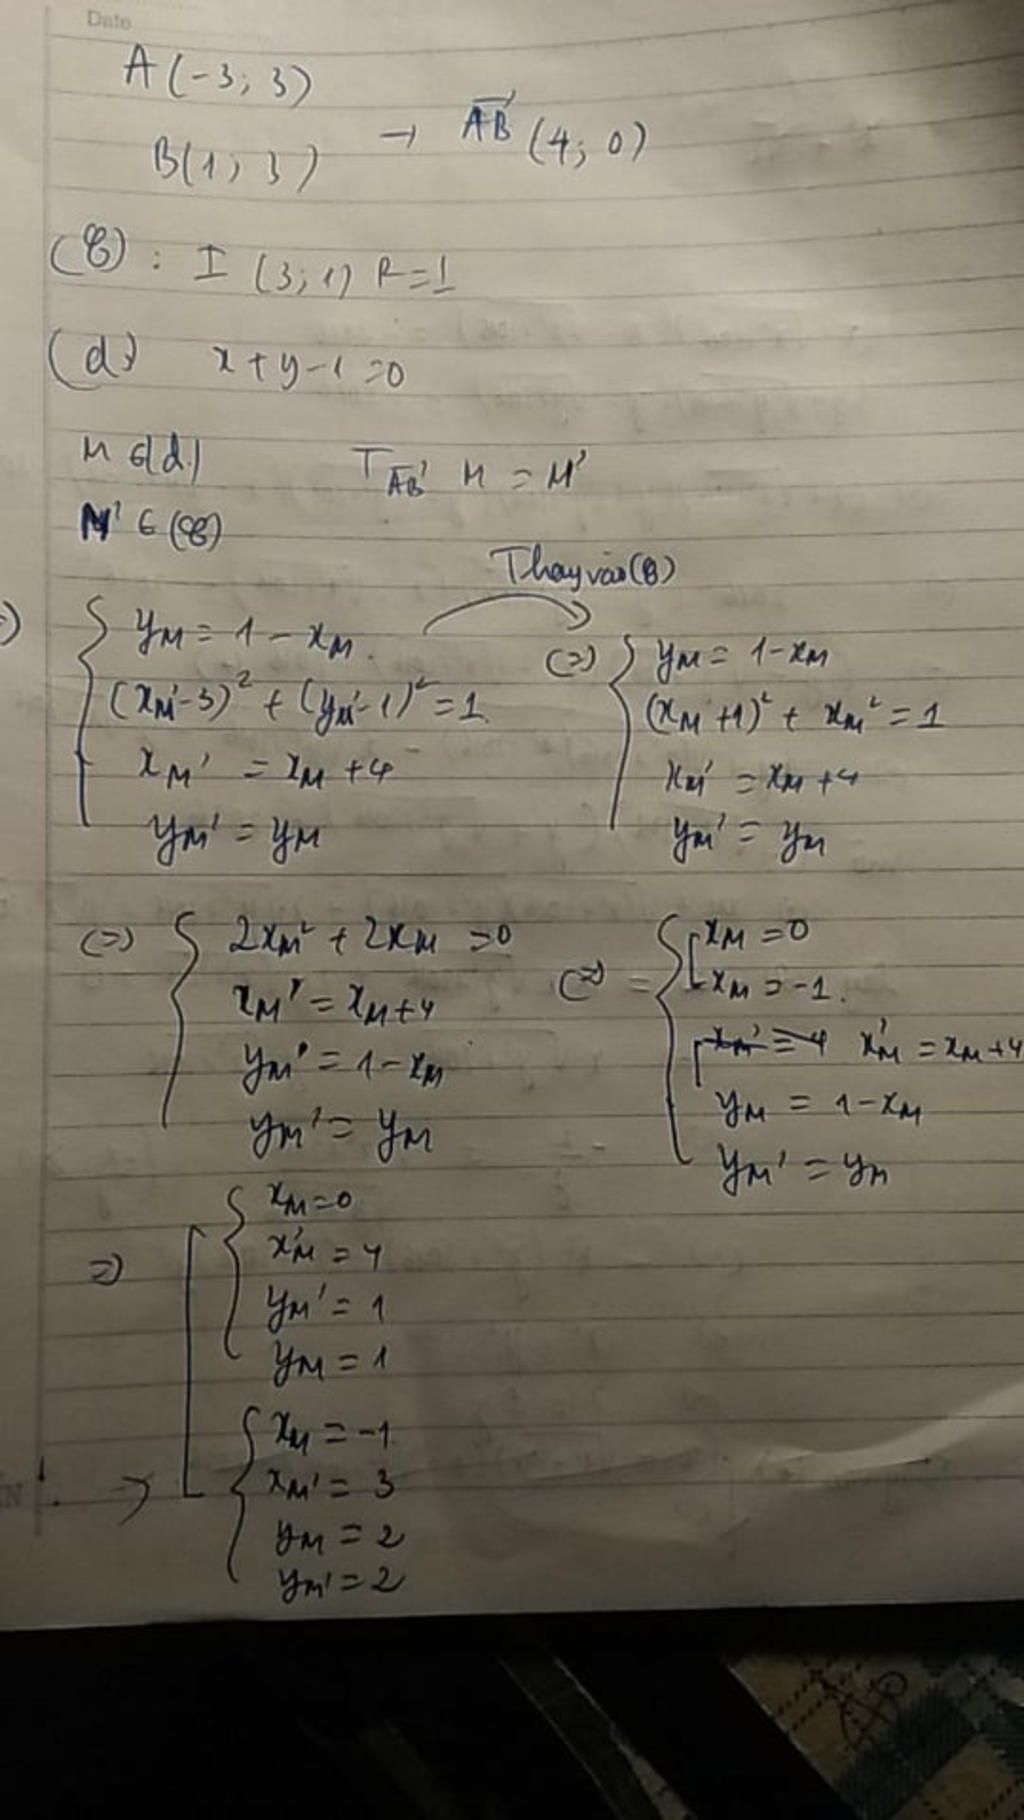 Date
A(-3; 3)
B(1; 3) → AB (4; 0)
(C) : I (3; 1) R=1
(d) x+y-1=0
M ∈(d) T AB M = M'
M' ∈ (C)
Thay vào (C)
{ yM = 1 - xM
(xM'-3)² + (yM'-1)² = 1
xM' = xM + 4
yM' = yM
(=) { yM = 1-xM
(xM+1)² + xM² = 1
xM' = xM + 4
yM' = yM
(=) { 2xM² + 2xM = 0
xM' = xM+4
yM' = 1-xM
yM' = yM
(=) { [ xM = 0
xM = -1.
xM' = 4 x'M = xM+4
yM = 1-xM
yM' = yM
=) [ { xM=0
x'M = 4
yM' = 1
yM = 1
{ xM = -1
xM' = 3
yM = 2
yM' = 2